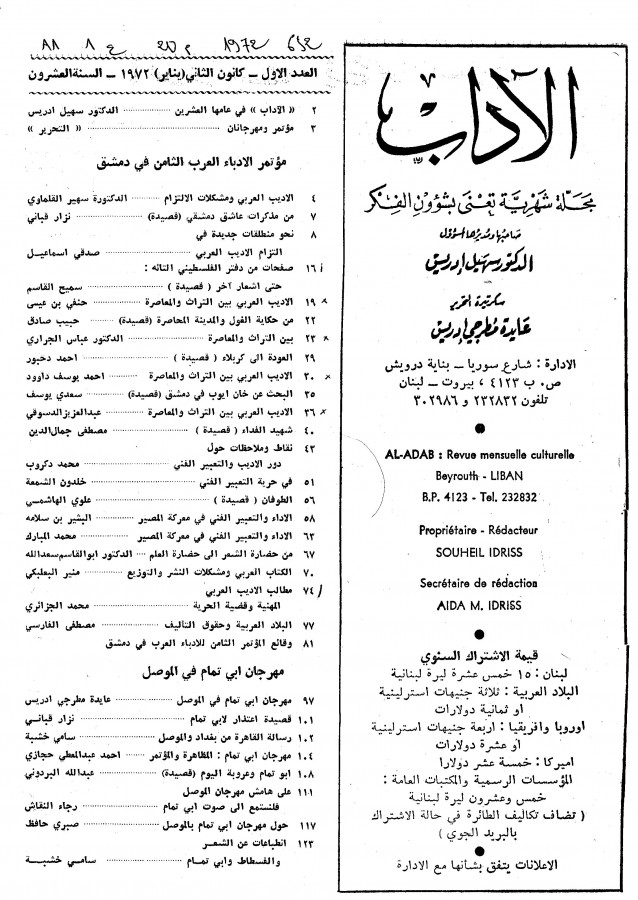 ٨٨ ١ ع ٢٥٢ 1972 ٤٥٤
العدد الاول – كانون الثاني (يناير) ١٩٧٢ – السنة العشرون
٢ «الآداب» في عامها العشرين ........ الدكتور سهيل ادريس
٣ مؤتمر ومهرجانان ........ « التحرير »
مؤتمر الادباء العرب الثامن في دمشق
٤ الاديب العربي ومشكلات الالتزام ........ الدكتورة سهير القلماوي
٧ من مذكرات عاشق دمشقي (قصيدة) ........ نزار قباني
٨ نحو منطلقات جديدة في
التزام الاديب العربي ........ صدقي اسماعيل
١٦ صفحات من دفتر الفلسطيني التائه :
حتى اشعار آخر ( قصيدة ) ........ سميح القاسم
١٩ الاديب العربي بين التراث والمعاصرة ........ حنفي بن عيسى
٢٢ من حكاية القول والمدينة المحاصرة (قصيدة) ........ حبيب صادق
٢٣ بين التراث والمعاصرة ........ الدكتور عباس الجراري
٢٩ العودة الى كربلاء ( قصيدة ) ........ احمد دحبور
٣٠ الاديب العربي بين التراث والمعاصرة ........ احمد يوسف داوود
٣٥ البحث عن خان ايوب في دمشق (قصيدة) ........ سعدي يوسف
٣٦ الاديب العربي بين التراث والمعاصرة ........ عبدالعزيز الدسوقي
٤٠ شهيد الغداء ( قصيدة ) ........ مصطفى جمال الدين
٤٣ نقاط وملاحظات حول
دور الاديب والتعبير الفني ........ محمد دكروب
٥١ في حرية التعبير الفني ........ خلدون الشمعة
٥٦ الطوفان ( قصيدة ) ........ علوي الهاشمي
٥٨ الاداء والتعبير الفني في معركة المصير ........ البشير بن سلامه
٦٣ الاداء والتعبير الفني في معركة المصير ........ محمد المبارك
٦٧ من حضارة الشعر الى حضارة العلم .... الدكتور ابوالقاسم سعدالله
٧٠ الكتاب العربي ومشكلات النشر والتوزيع ........ منير البعلبكي
٧٤ مطالب الاديب العربي
المهنية وقضية الحرية ........ محمد الجزائري
٧٧ البلاد العربية وحقوق التأليف ........ مصطفى الفارسي
٨١ وقائع المؤتمر الثامن للادباء العرب في دمشق
مهرجان ابي تمام في الموصل
٩٧ مهرجان ابي تمام في الموصل ........ عايدة مطرجي ادريس
١٠١ قصيدة اعتذار لابي تمام ........ نزار قباني
١٠٢ رسالة القاهرة من بغداد والموصل ........ سامي خشبة
١٠٤ مهرجان ابي تمام : المظاهرة والمؤتمر .... احمد عبدالمعطي حجازي
١٠٨ ابو تمام وعروبة اليوم (قصيدة) ........ عبدالله البردوني
١١١ على هامش مهرجان الموصل
فلنستمع الى صوت ابي تمام ........ رجاء النقاش
١١٧ حول مهرجان ابي تمام بالموصل ........ صبري حافظ
١٢٣ انطباعات عن الشعر
والفسطاط وابي تمام ........ سامي خشبة
الآداب
مجلة شهرية تعنى بشؤون الفكر
صاحبها ومديرها المسؤول
الدكتور سهيل إدريس
سكرتيرة التحرير
عايدة مطرجي إدريس
الادارة : شارع سوريا – بناية درويش
ص. ب ٤١٢٣ ، بيروت – لبنان
تلفون ٢٣٢٨٣٢ و ٣٠٢٩٨٦
AL-ADAB : Revue mensuelle culturelle
Beyrouth - LIBAN
B.P. 4123 - Tel. 232832
Propriétaire - Rédacteur
SOUHEIL IDRISS
Secrétaire de rédaction
AIDA M. IDRISS
قيمة الاشتراك السنوي
لبنان : ١٥ خمس عشرة ليرة لبنانية
البلاد العربية : ثلاثة جنيهات استرلينية
او ثمانية دولارات
اوروبا وافريقيا : اربعة جنيهات استرلينية
او عشرة دولارات
اميركا : خمسة عشر دولارا
المؤسسات الرسمية والمكتبات العامة :
خمس وعشرون ليرة لبنانية
( تضاف تكاليف الطائرة في حالة الاشتراك
بالبريد الجوي )
الاعلانات يتفق بشأنها مع الادارة